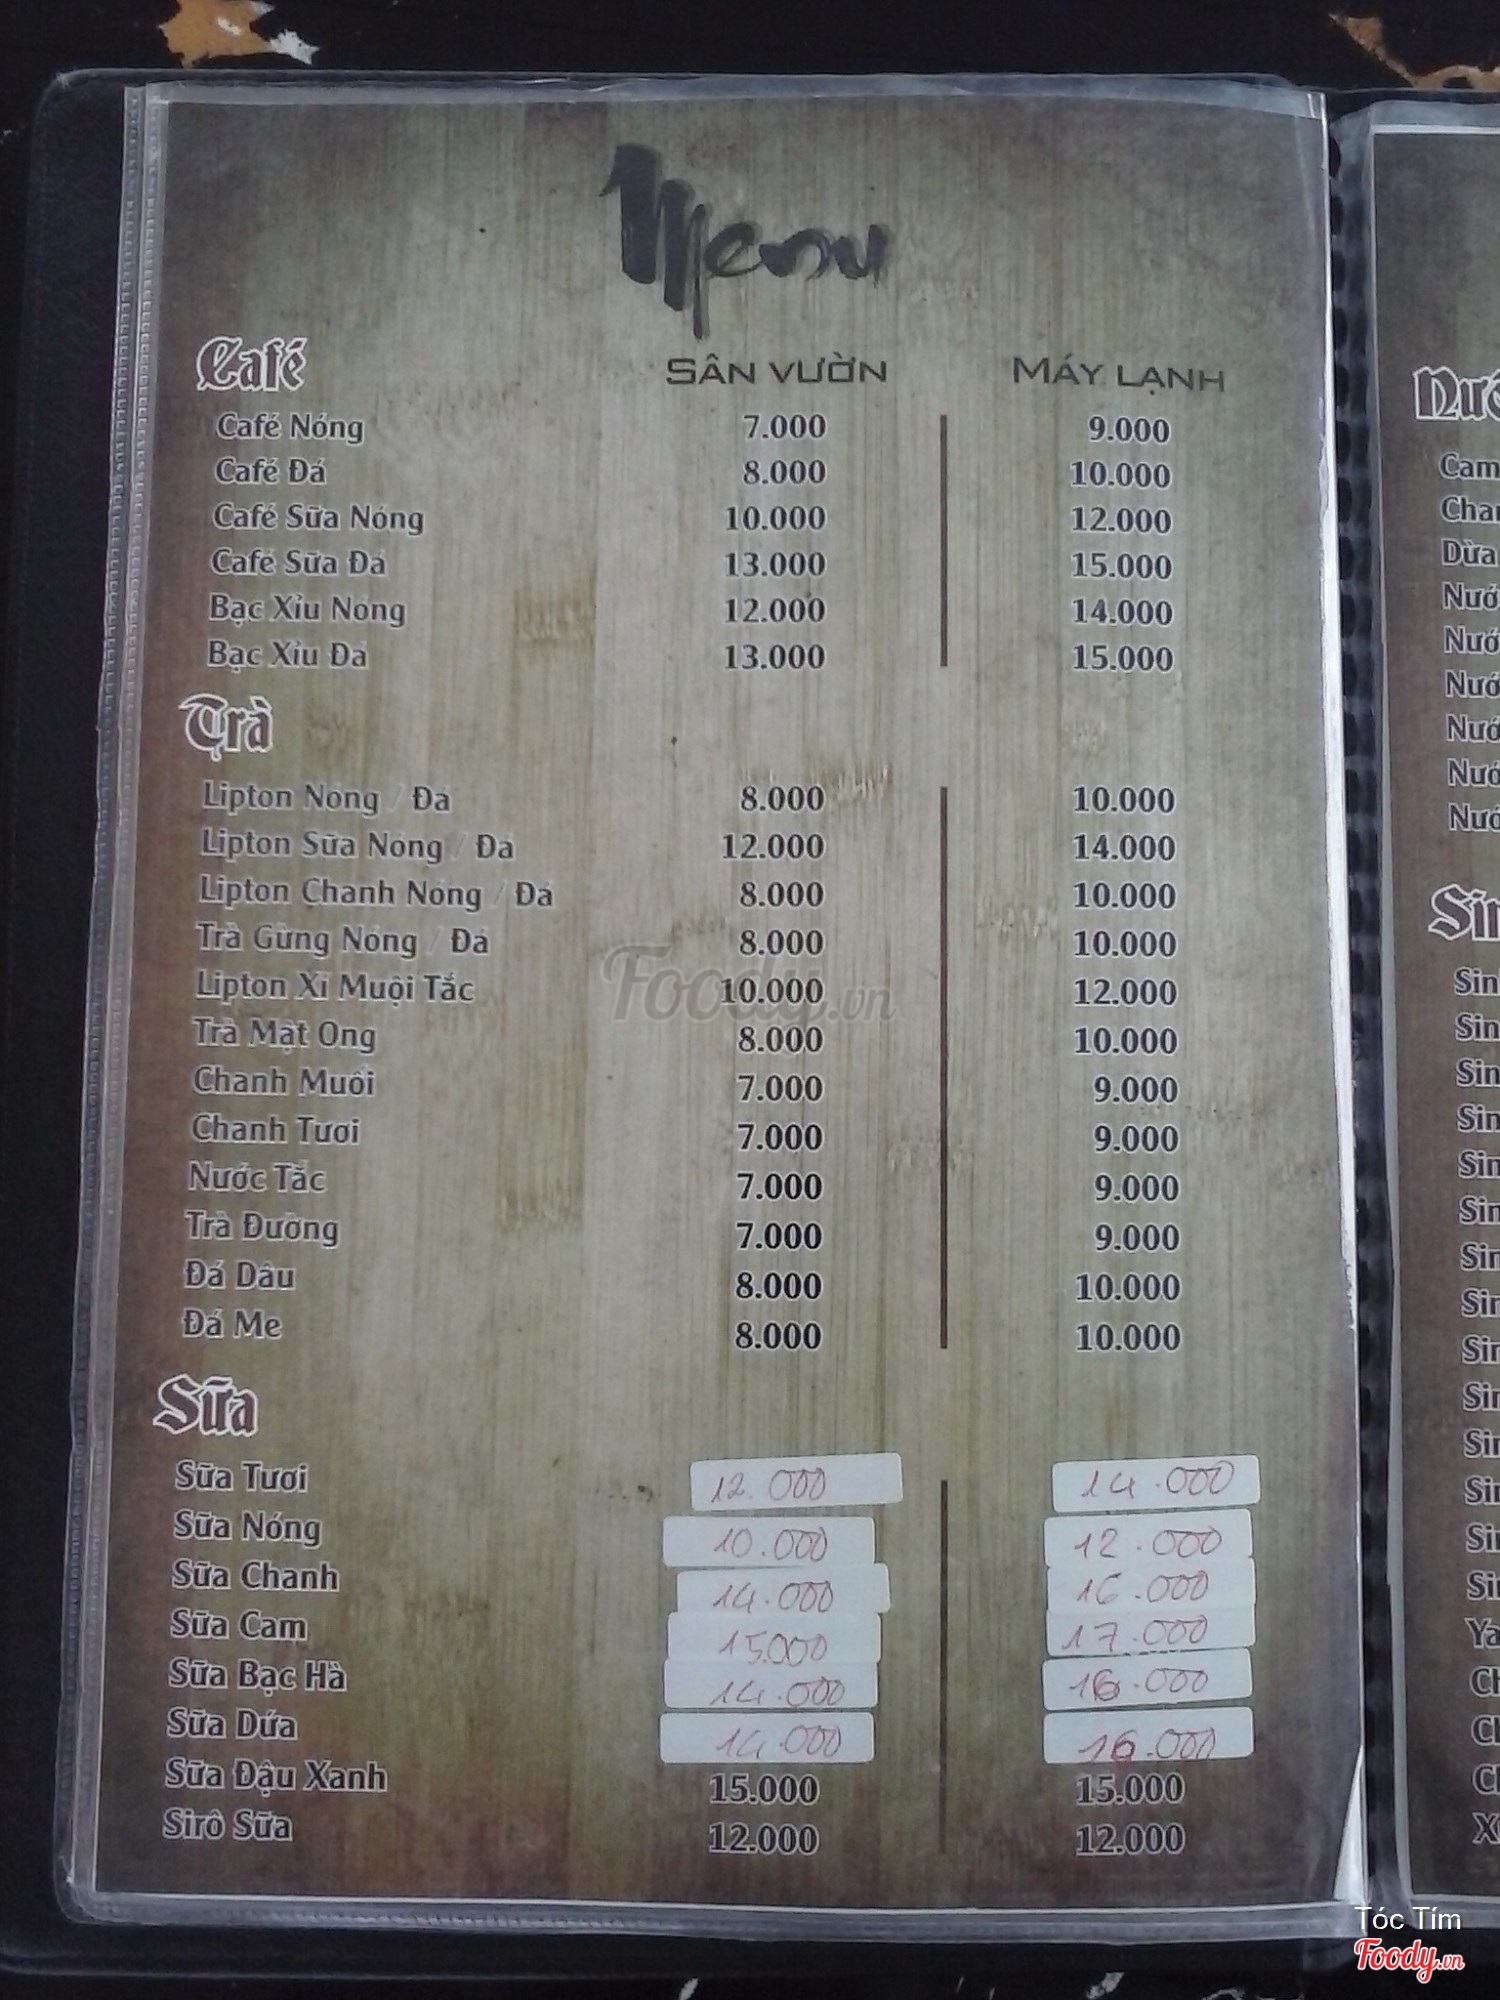 Menu
Café SÂN VƯỜN MÁY LẠNH
Café Nóng 7.000 9.000
Café Đá 8.000 10.000
Café Sữa Nóng 10.000 12.000
Café Sữa Đá 13.000 15.000
Bạc Xỉu Nóng 12.000 14.000
Bạc Xỉu Đá 13.000 15.000
Trà
Lipton Nóng / Đá 8.000 10.000
Lipton Sữa Nóng / Đá 12.000 14.000
Lipton Chanh Nóng / Đá 8.000 10.000
Trà Gừng Nóng / Đá 8.000 10.000
Lipton Xí Muội Tắc 10.000 12.000
Trà Mật Ong 8.000 10.000
Chanh Muối 7.000 9.000
Chanh Tươi 7.000 9.000
Nước Tắc 7.000 9.000
Trà Đường 7.000 9.000
Đá Dâu 8.000 10.000
Đá Me 8.000 10.000
Sữa
Sữa Tươi 12.000 14.000
Sữa Nóng 10.000 12.000
Sữa Chanh 14.000 16.000
Sữa Cam 15.000 17.000
Sữa Bạc Hà 14.000 16.000
Sữa Dứa 14.000 16.000
Sữa Đậu Xanh 15.000 15.000
Sirô Sữa 12.000 12.000
Cam
Dừa
Foody.vn
Tóc Tím
Foody.vn